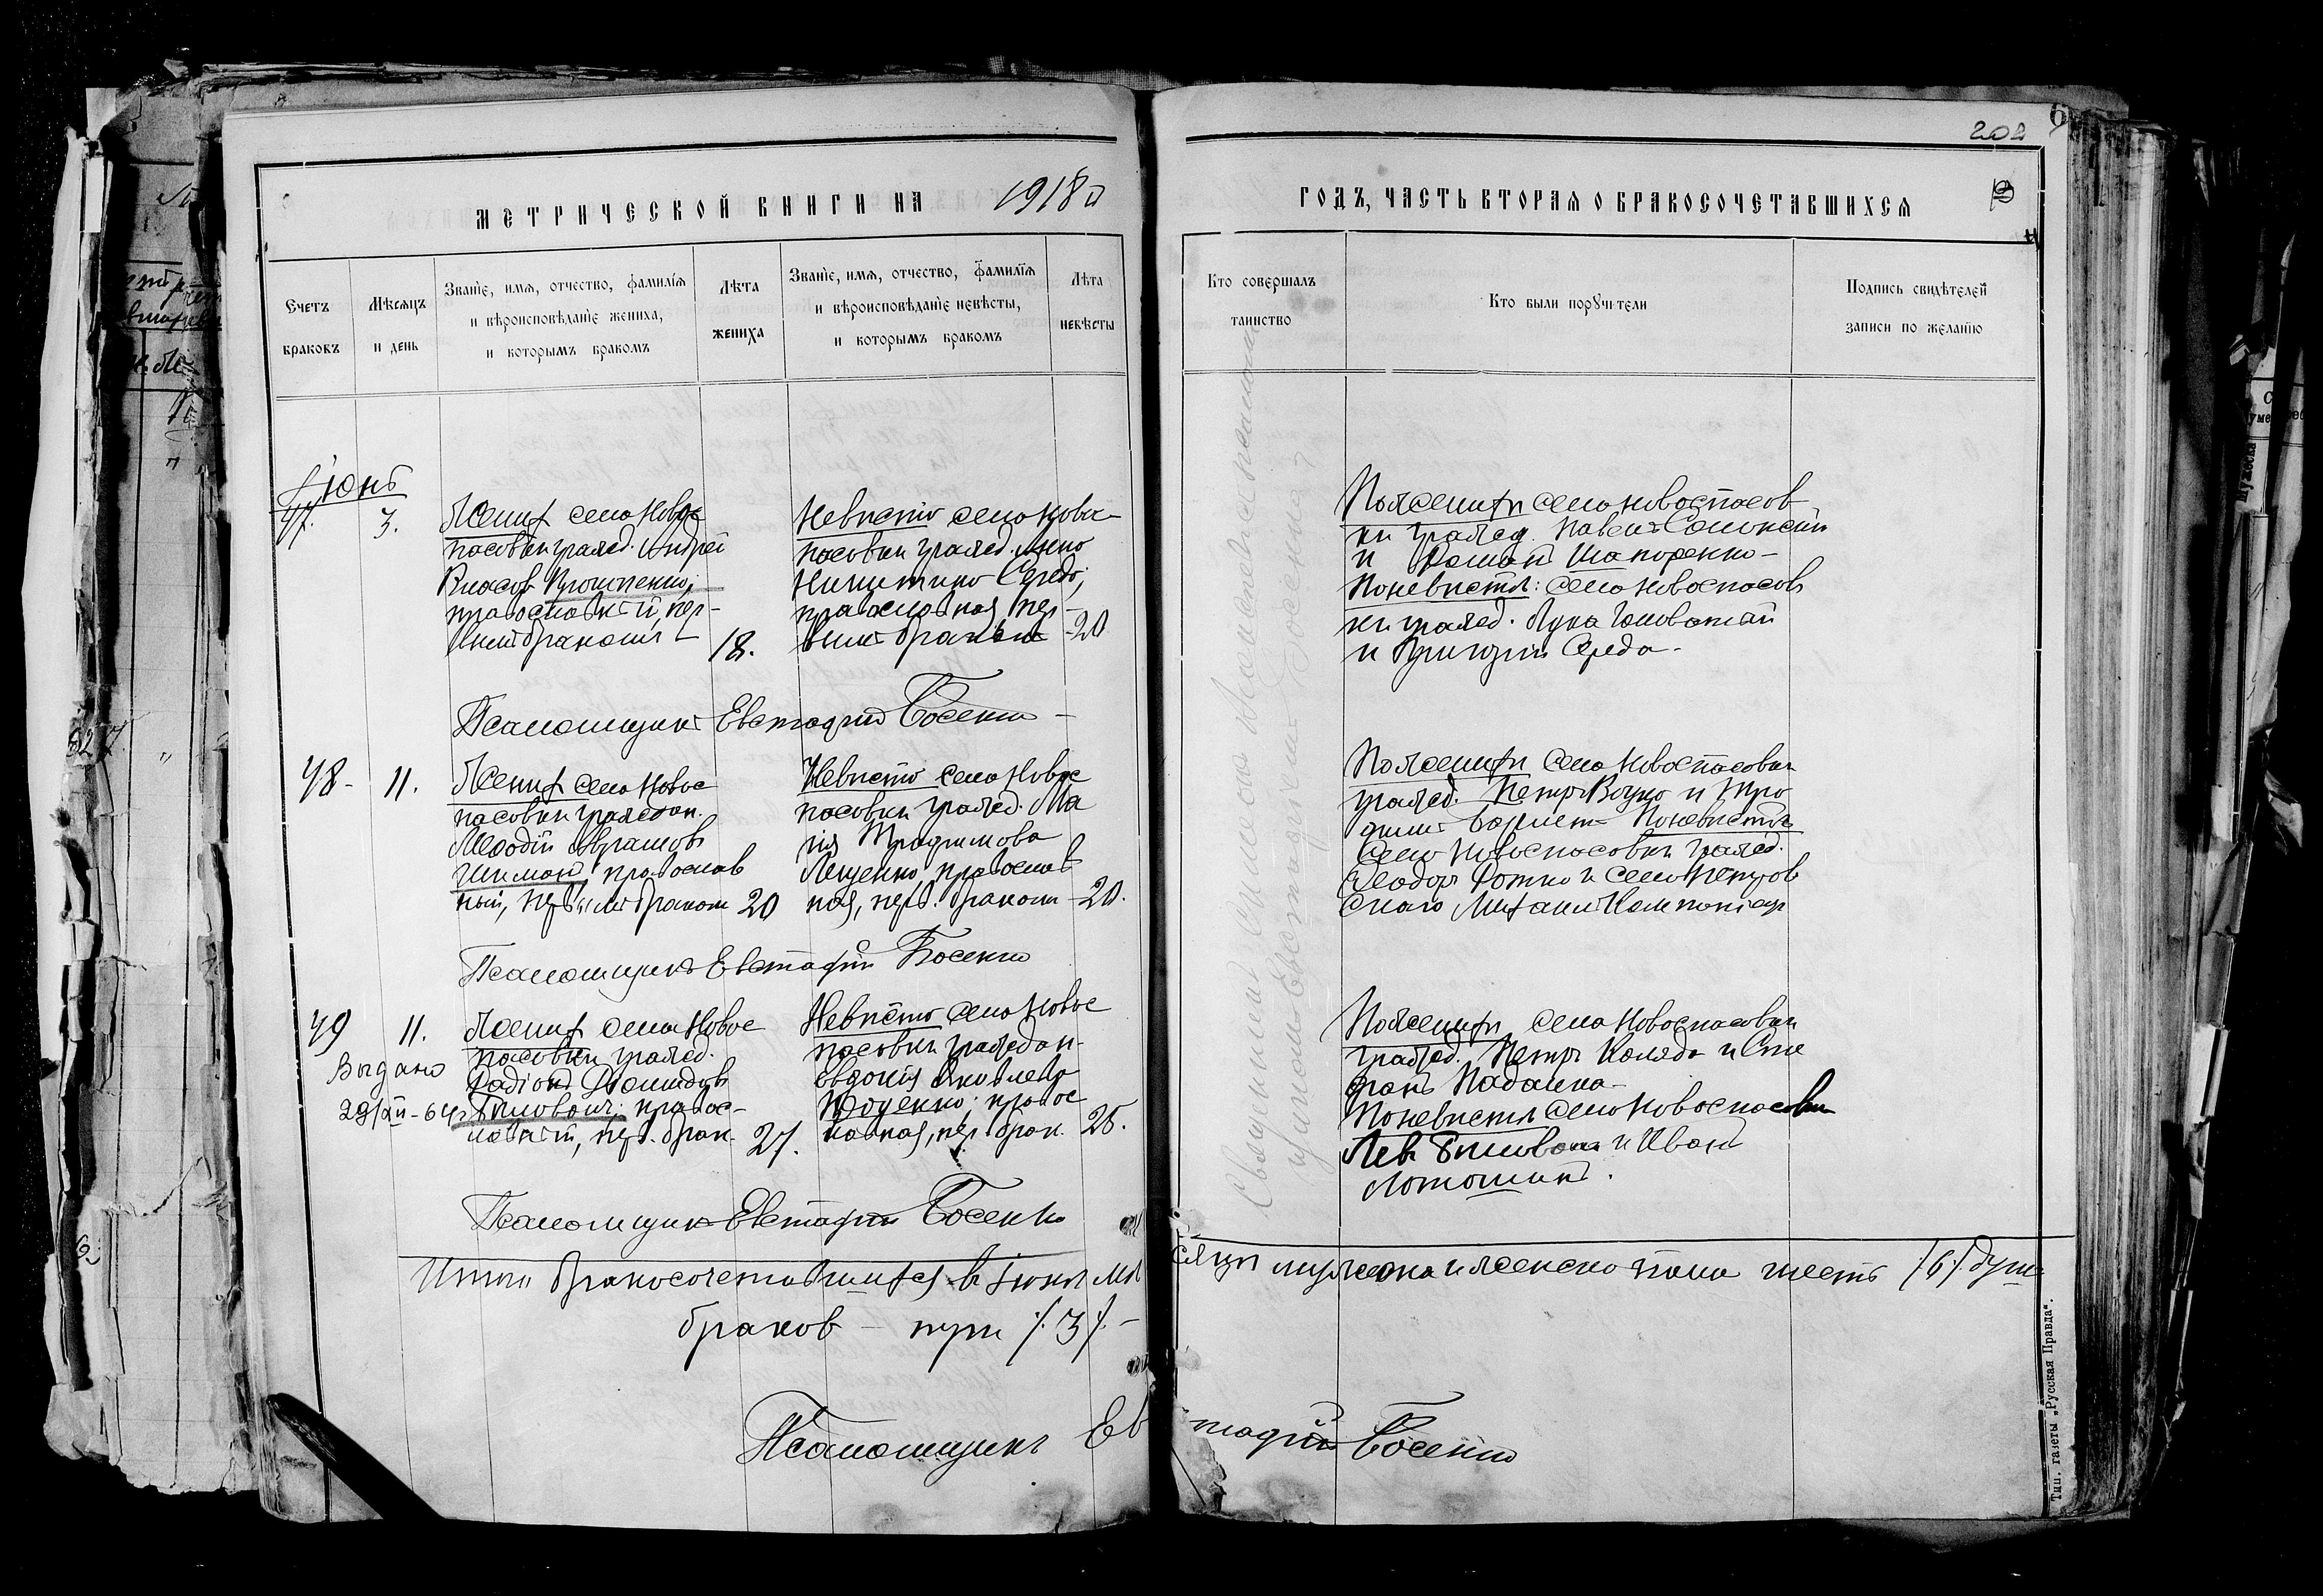 202
МЕТРИЧЕСКОЙ КНИГИ НА 1918
ГОДЪ, ЧАСТЬ ВТОРАЯ О БРАКОСОЧЕТАВШИХСЯ
Счетъ браковъ
Мѣсяцъ и день
Званіе, имя, отчество, фамилія
и вѣроисповѣданіе жениха,
и которымъ бракомъ
Лѣта жениха
Званіе, имя, отчество, фамилія
и вѣроисповѣданіе невѣсты,
и которымъ бракомъ
Лѣта невѣсты
Кто совершалъ таинство
Кто были поручители
Подпись свидѣтелей
записи по желанію
Іюнь
47. 3.
Жених села Новос
пасовки гражд. Андрей
Власов
православный, пер-
вым браком 18.
Невеста села Новос
пасовки гражд. Анна
Никитина Середа;
православная, пер-
вым браком 20
По женихе села Новоспасов
ки гражд. Павел
и Роман Шапоренко
По невесте: села Новоспасов
ки гражд. Лука Головатий
и Григорий Середа
Псаломщик Евстафий Босенко
48 - 11.
Жених села Новос
пасовки граждан.
Мефодій Аврамов
Шиман, православ
ный, первым браком 20
Невеста села Новос
пасовки гражд. Ма
рія Трофимова
Лященко, православ
ная, перв. браком - 20.
По женихе села Новоспасовки
гражд. Петр и Тро
фим По невесте
села Новоспасовки гражд.
Феодор и села Петров
скаго Михаил
Псаломщик Евстафий Босенко
49 11.
Выдано
29/XII-64г
Жених села Новос
пасовки гражд.
Радіон Діомидов
Билован; правос-
лавный, перв. брак. 27.
Невеста села Новос
пасовки граждан.
Евдокія Яковлева
правос
лавная, пер. брак. 25.
По женихе села Новоспасовки
гражд. Петр Коляда и Сте
фан Падалка
По невесте села Новоспасовки
Лев Билован и Иван
Лотошник.
Псаломщик Евстафий Босенко
Итого бракосочетавшихся в Іюне месяце мужеска и женска пола шесть /6/ душ
браков - три /.3/. -
Псаломщик Евстафий Босенко
Тип. газеты „Русская Правда“.